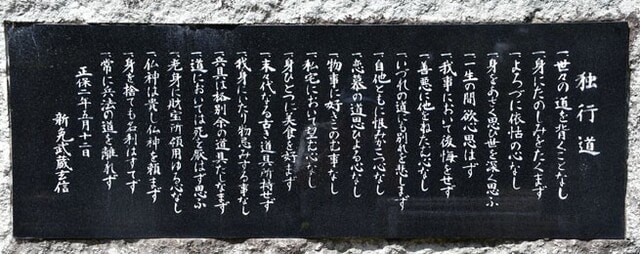 独行道
一世々の道を背くことなし
一身にたのしみをたくまず
一よろづに依怙の心なし
一身をあさく思ひ世を深く思ふ
一一生の間欲心思はず
一我事において後悔をせず
一善悪に他をねたむ心なし
一いづれの道にも別れを悲しまず
一自他ともに恨みかこつ心なし
一恋慕の道思ひよる心なし
一物事に好きこのむ事なし
一私宅において望む心なし
一身ひとつに美食を好まず
一末々代なる古き道具所持せず
一我身にいたり物忌みする事なし
一兵具は格別余の道具たしなまず
一道においては死を厭はず思ふ
一老身に財宝所領用ゆる心なし
一仏神は貴し仏神を頼まず
一身を捨ても名利はすてず
一常に兵法の道を離れず
正保二年五月十二日
新免武蔵玄信